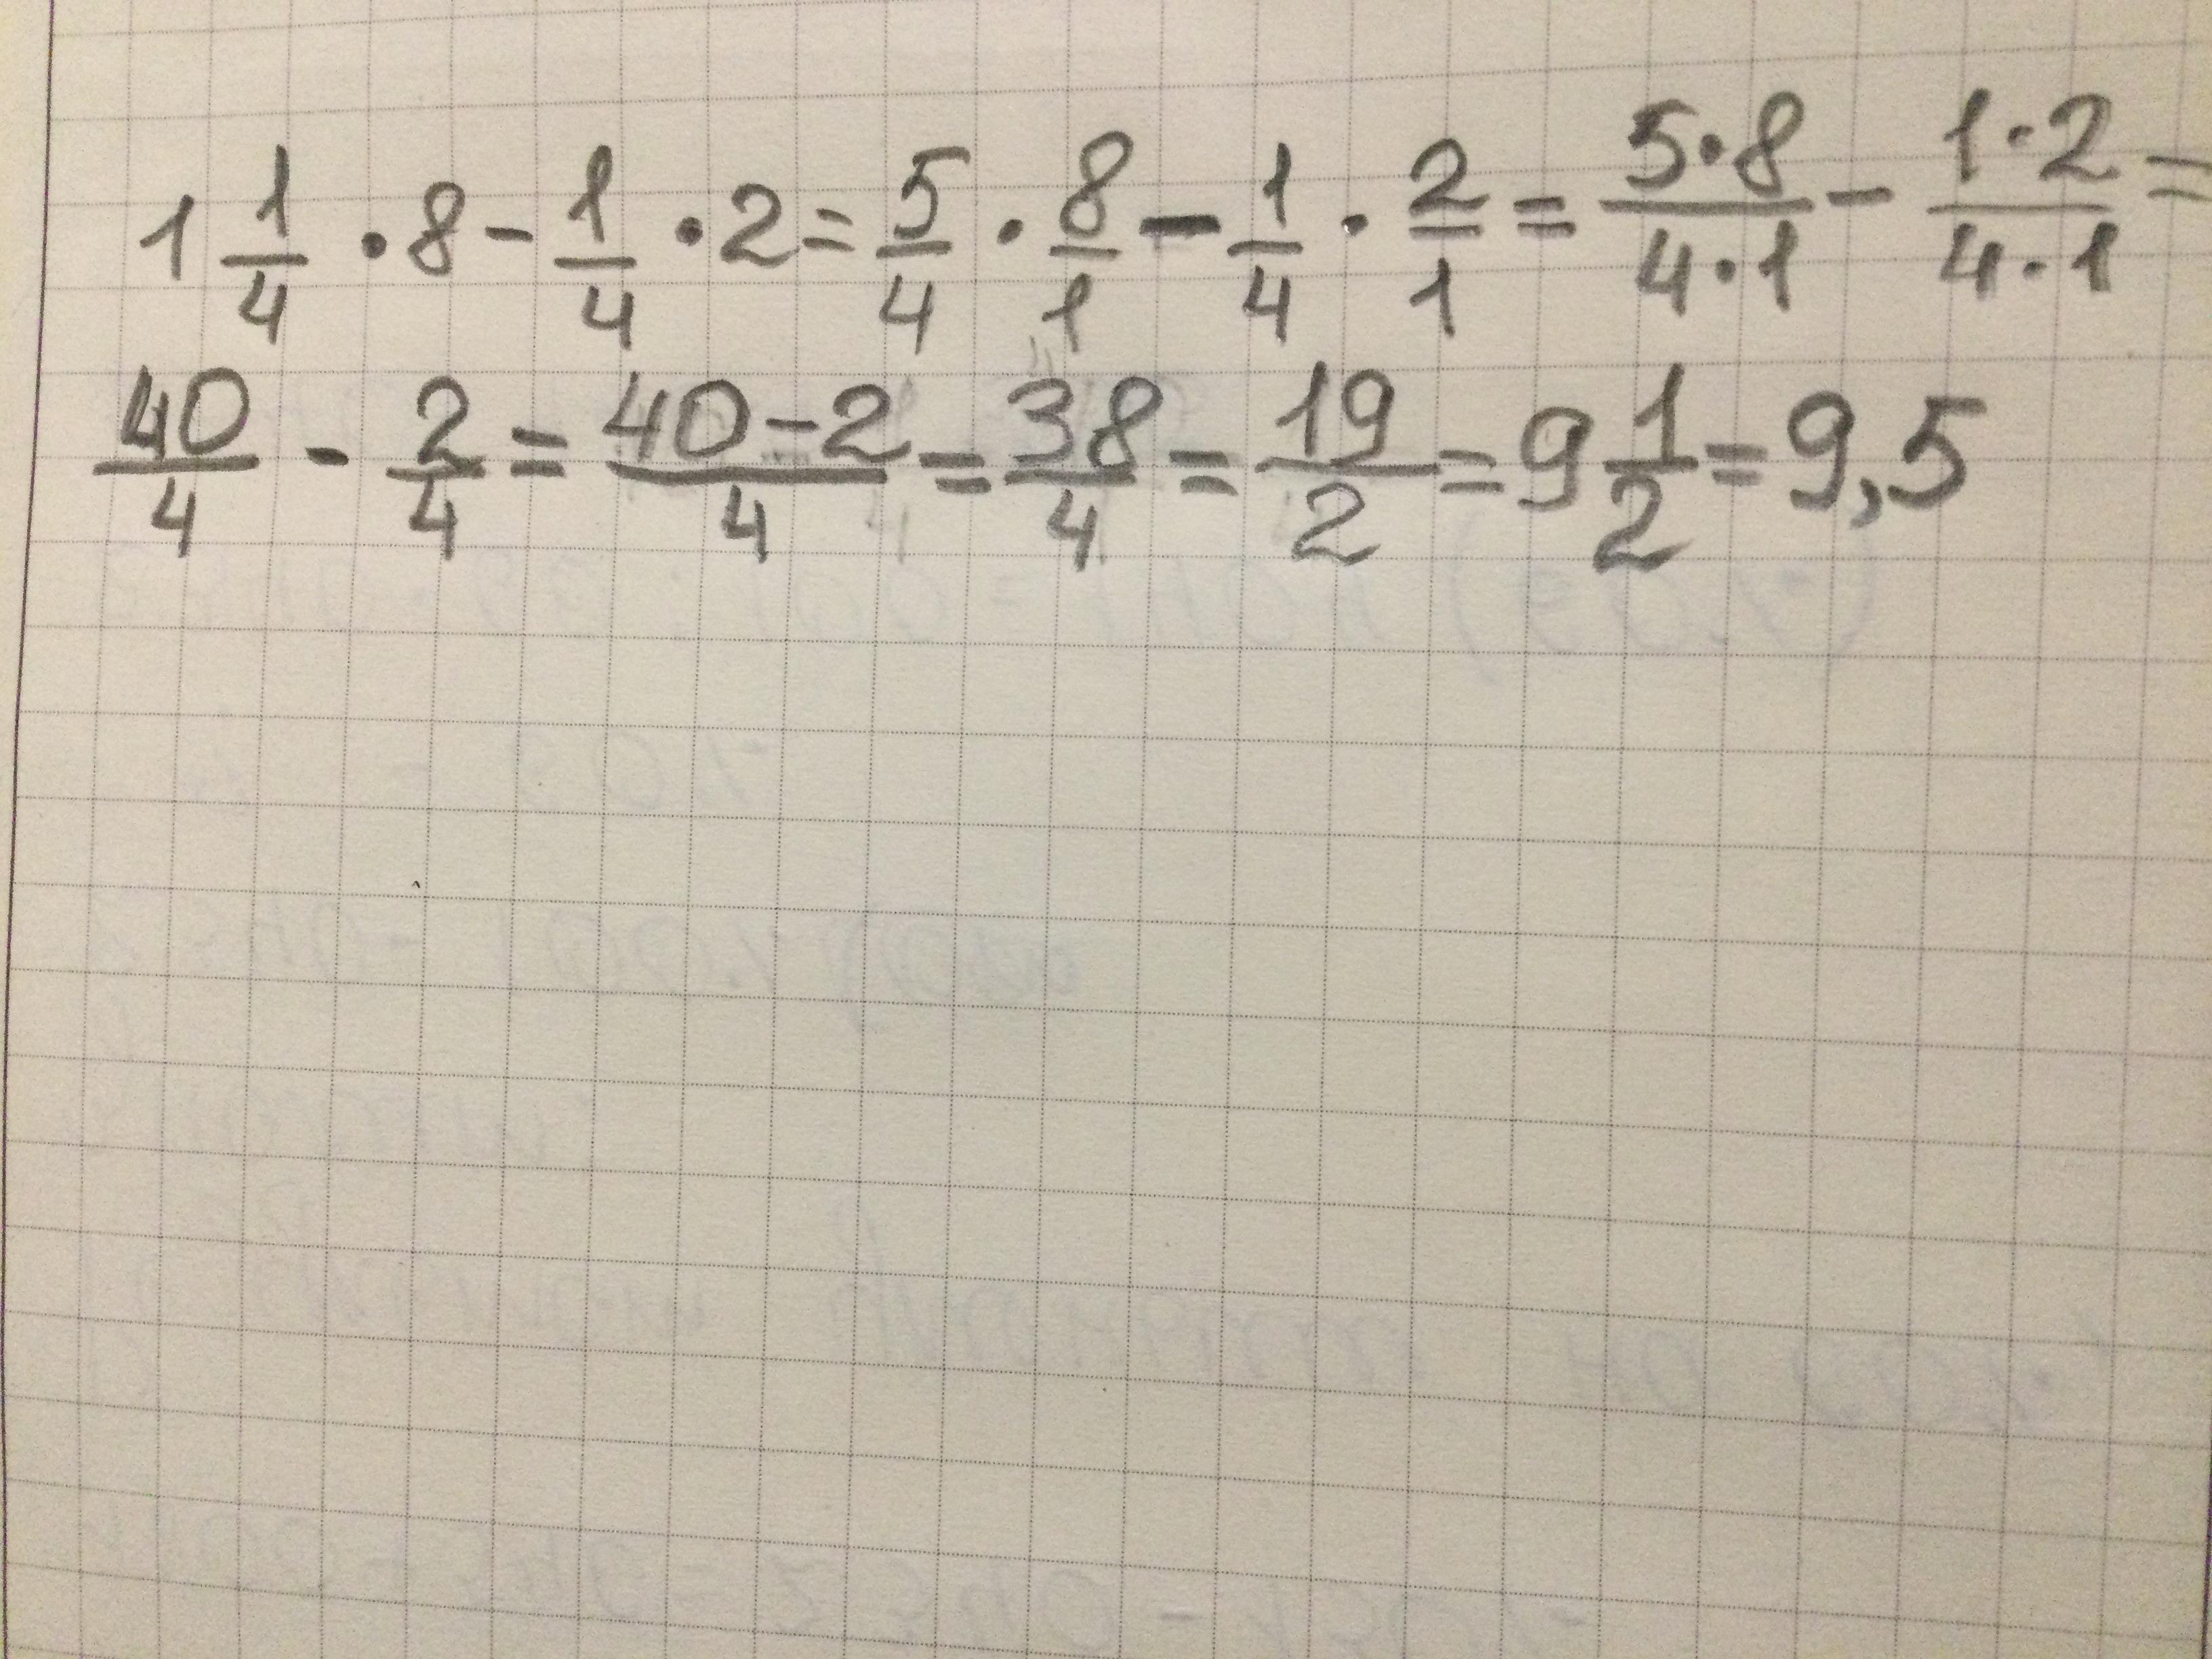 1 1/4 · 8 - 1/4 · 2 = 5/4 · 8/1 - 1/4 · 2/1 = 5·8/4·1 - 1·2/4·1 =
40/4 - 2/4 = 40-2/4 = 38/4 = 19/2 = 9 1/2 = 9,5